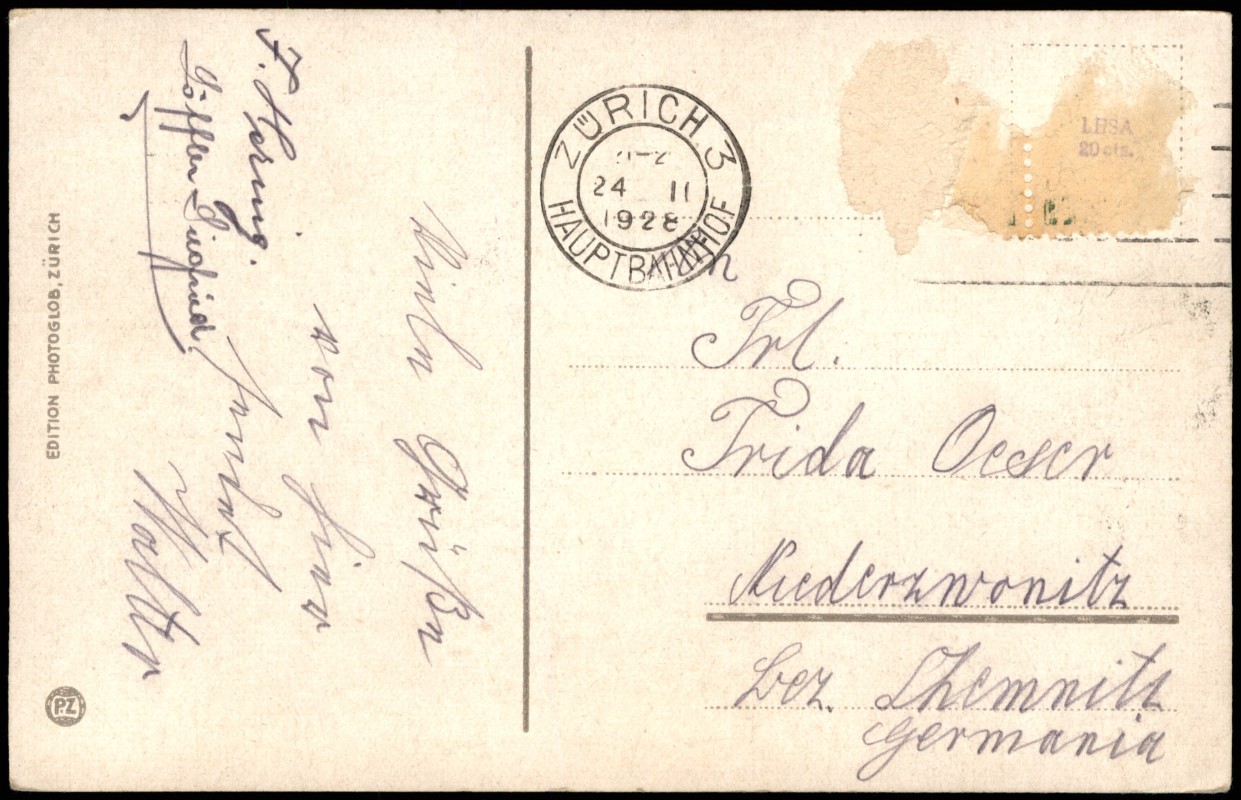 F. Hering.
Löffler Siegfried
Viele Grüßen
von hier
sendet
Walter
EDITION PHOTOGLOB, ZÜRICH
PZ
ZÜRICH 3
24 II
1928
HAUPTBAHNHOF
20 cts.
Frl.
Frida Oeser
Niederzwönitz
Bez. Chemnitz
Germania